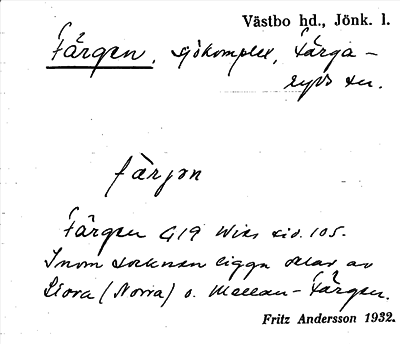 Västbo hd., Jönk. l.
Färgen, sjökomplex, Färga-
ryds sn.
färjən
Färgen G19 Wies sid. 105.
Inom socknen ligga delar av
Stora (Norra) o. Mellan-Färgen.
Fritz Andersson 1932.